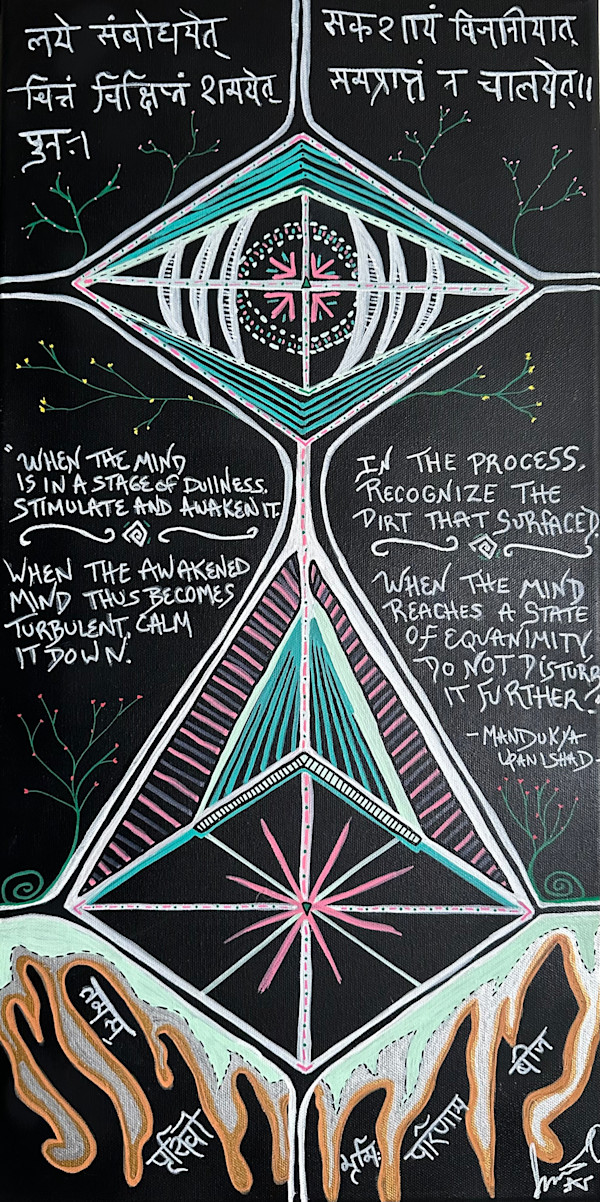 लये संबोधयेत्
चित्तं विक्षिप्तं शमयेत्
पुनः।
सकशायं विजानीयात्
समप्राप्तं न चालयेत्॥
"WHEN THE MIND
IS IN A STAGE OF DULLNESS,
STIMULATE AND AWAKEN IT.
WHEN THE AWAKENED
MIND THUS BECOMES
TURBULENT, CALM
IT DOWN.
IN THE PROCESS,
RECOGNIZE THE
DIRT THAT SURFACED.
WHEN THE MIND
REACHES A STATE
OF EQUANIMITY
DO NOT DISTURB
IT FURTHER."
-MANDUKYA
UPANISHAD-
तमस्
पृथिवी
भूमिः
परिणाम
बीज